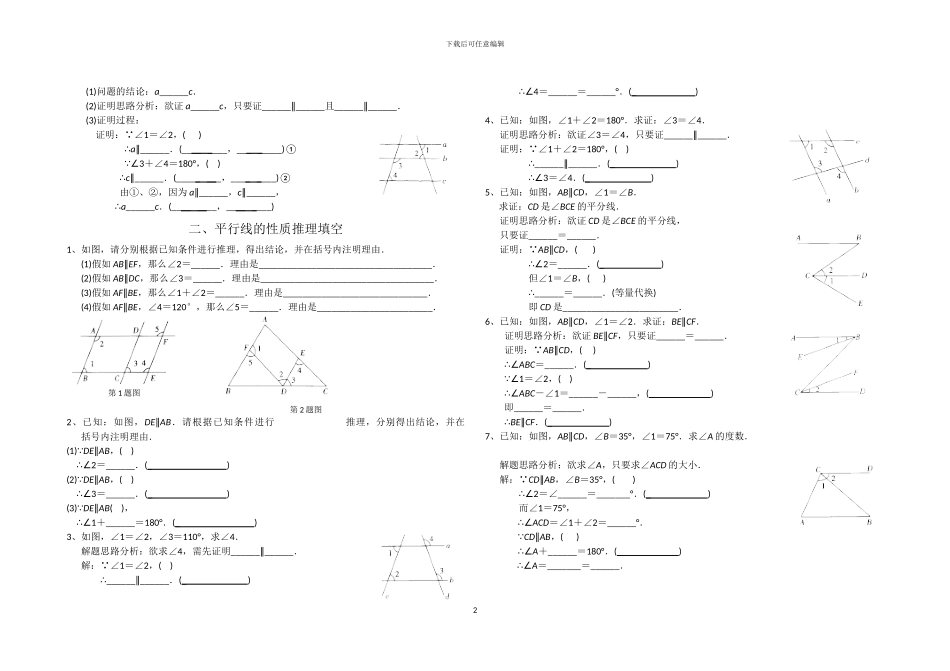 下载后可任意编辑
(1)问题的结论：a______c．
(2)证明思路分析：欲证 a______c，只要证______∥______且______∥______．
(3)证明过程：
证明：∵∠1＝∠2，( )
∴a∥______．(________，________)①
∵∠3＋∠4＝180°，( )
∴c∥______．(________，________)②
由①、②，因为 a∥______，c∥______，
∴a______c．(________，________)
a
1
2
b
3
4
c
二、平行线的性质推理填空
1、如图，请分别根据已知条件进行推理，得出结论，并在括号内注明理由．
(1)假如 AB∥EF，那么∠2＝______．理由是____________________________________．
(2)假如 AB∥DC，那么∠3＝______．理由是____________________________________．
(3)假如 AF∥BE，那么∠1＋∠2＝______．理由是______________________________．
(4)假如 AF∥BE，∠4＝120°，那么∠5＝______．理由是________________________．
A D 5 F
2
1 3 4
B C E
第 1 题图
A
F 1 E
5 4
2 3
B D C
第 2 题图
2、已知：如图，DE∥AB．请根据已知条件进行 推理，分别得出结论，并在
括号内注明理由．
(1)∵DE∥AB，( )
∴∠2＝______．(________________)
(2)∵DE∥AB，( )
∴∠3＝______．(________________)
(3)∵DE∥AB( )，
∴∠1＋______＝180°．(________________)
3、如图，∠1＝∠2，∠3＝110°，求∠4．
解题思路分析：欲求∠4，需先证明______∥______．
解：∵∠1＝∠2，( )
∴______∥______．(______________)
4
a
1
2 3
b
c d
∴∠4＝______＝______°．(______________)
4、已知：如图，∠1＋∠2＝180°．求证：∠3＝∠4．
证明思路分析：欲证∠3＝∠4，只要证______∥______．
证明：∵∠1＋∠2＝180°，( )
∴______∥______．(______________)
∴∠3＝∠4．(______________)
1 2 c
3 d
4
a b
5、已知：如图，AB∥CD，∠1＝∠B．
求证：CD 是∠BCE 的平分线．
证明思路分析：欲证 CD 是∠BCE 的平分线，
只要证______＝______．
证明：∵AB∥CD，( )
∴∠2＝______．(______________)
但∠1＝∠B，( )
∴______＝______．(等量代换)
即 CD 是________________________．
A B
C 2 D
1
E
6、已知：如图，AB∥CD，∠1＝∠2．求证：BE∥CF．
证明思路分析：欲证 BE∥CF，只要证______＝______．
证明：∵AB∥CD，( )
∴∠ABC＝______．(______________)
∵∠1＝∠2，( )
∴∠ABC－∠1＝______－______，(______________)
即______＝______．
∴BE∥CF．(______________)
A B
1
E
F
C 2 D
7、已知：如图，AB∥CD，∠B＝35°，∠1＝75°．求∠A 的度数．
解题思路分析：欲求∠A，只要求∠ACD 的大小．
解：∵CD∥AB，∠B＝35°，( )
∴∠2＝∠______＝_______°．(______________)
而∠1＝75°，
∴∠ACD＝∠1＋∠2＝______°．
∵CD∥AB，( )
∴∠A＋______＝180°．(______________)
∴∠A＝_______＝______．
C D
1 2
A B
2